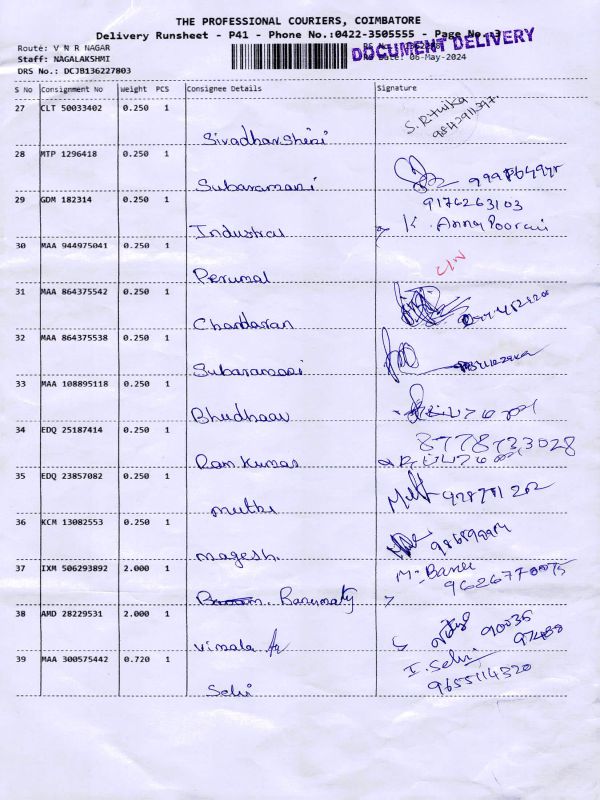 THE PROFESSIONAL COURIERS, COIMBATORE
Delivery Runsheet - P41 - Phone No.:0422-3505555 - Page No.:3
DOCUMENT DELIVERY
Route: V N R NAGAR
Staff: NAGALAKSHMI
06-May-2024
DRS No.: DCJB136227803
S No Consignment No Weight PCS Consignee Details Signature
27 CLT 50033402 0.250 1
S. Rithika
Sivadharshini
28 MTP 1296418 0.250 1
Subaramani
29 GDM 182314 0.250 1
9176263103
Industrial K. Annapoorani
30 MAA 944975041 0.250 1
Perumal
31 MAA 864375542 0.250 1
Chandaran
32 MAA 864375538 0.250 1
Subaramani
33 MAA 108895118 0.250 1
Bhudhaav
34 EDQ 25187414 0.250 1
8778733028
Ram Kumar
35 EDQ 23857082 0.250 1
Muthu
36 KCM 13082553 0.250 1
Magesh
37 IXM 506293892 2.000 1
M. Banu
Banumaty
38 AMD 28229531 2.000 1
90035
97488
Vimala
39 MAA 300575442 0.720 1
I. Selvi
9655114320
Selvi